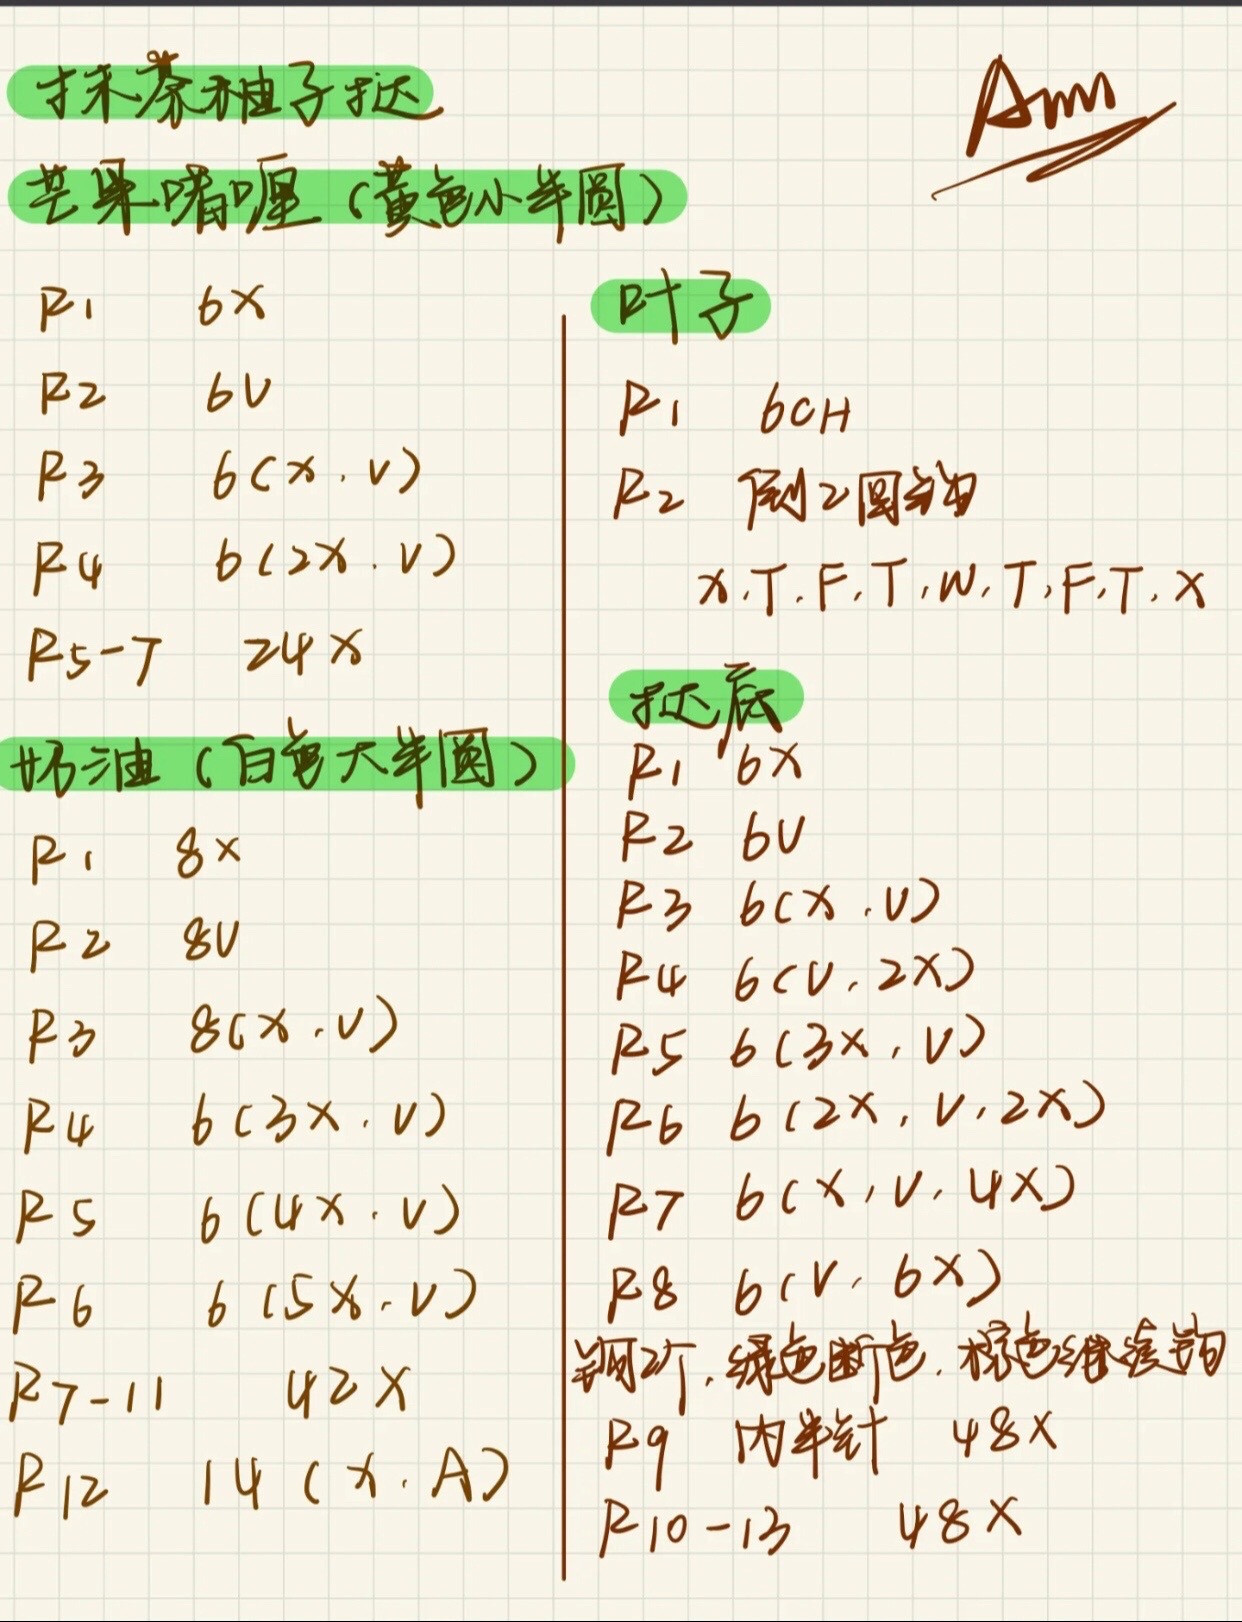 抹茶柚子挞
Ann
芒果啫喱（黄色小半圆）
R1 6X
R2 6V
R3 6(X.V)
R4 6(2X.V)
R5-7 24X
奶油（白色大半圆）
R1 8X
R2 8V
R3 8(X.V)
R4 6(3X.V)
R5 6(4X.V)
R6 6(5X.V)
R7-11 42X
R12 14(X.A)
叶子
R1 6CH
R2 倒2圆钩
X.T.F.T.W.T.F.T.X
挞底
R1 6X
R2 6V
R3 6(X.V)
R4 6(V.2X)
R5 6(3X.V)
R6 6(2X,V,2X)
R7 6(X,V,4X)
R8 6(V.6X)
钩2个,绿色断色.棕色继续钩
R9 内半针 48X
R10-13 48X